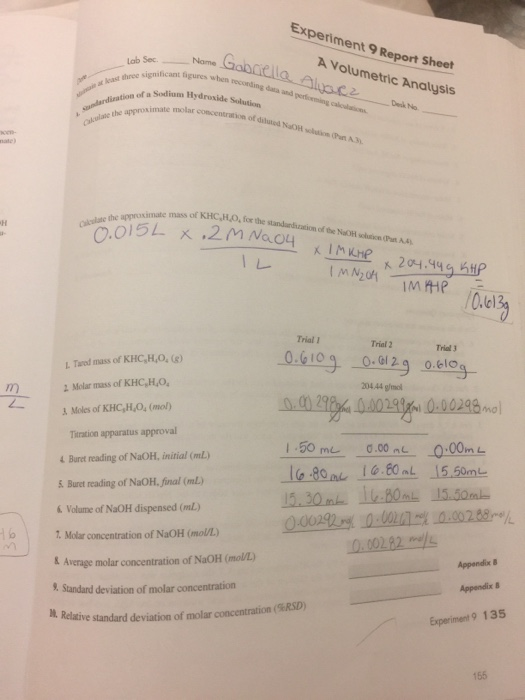 Experiment 9 Report Sheet
A Volumetric Analysis
Lab Sec.
Name Gabriella Alvarez
Desk No.
at least three significant figures when recording data and performing calculations.
Standardization of a Sodium Hydroxide Solution
Calculate the approximate molar concentration of diluted NaOH solution (Part A.3).
Calculate the approximate mass of KHC₈H₄O₄ for the standardization of the NaOH solution (Part A.4).
0.015L x .2M NaOH x 1M KHP x 204.44g KHP =
1L 1M NaOH 1M KHP
0.613g
Trial 1 Trial 2 Trial 3
1. Tared mass of KHC₈H₄O₄ (g) 0.610g 0.612g 0.610g
2. Molar mass of KHC₈H₄O₄ 204.44 g/mol
3. Moles of KHC₈H₄O₄ (mol) 0.00298 0.00299 0.00298 mol
Titration apparatus approval
4. Buret reading of NaOH, initial (mL) 1.50 mL 0.00 mL 0.00mL
5. Buret reading of NaOH, final (mL) 16.80mL 16.80mL 15.50mL
6. Volume of NaOH dispensed (mL) 15.30mL 16.80mL 15.50mL
7. Molar concentration of NaOH (mol/L) 0.00292 0.00267 0.00288 mol/L
8. Average molar concentration of NaOH (mol/L) 0.00282 mol/L
9. Standard deviation of molar concentration Appendix B
10. Relative standard deviation of molar concentration (%RSD) Appendix B
Experiment 9 135
155